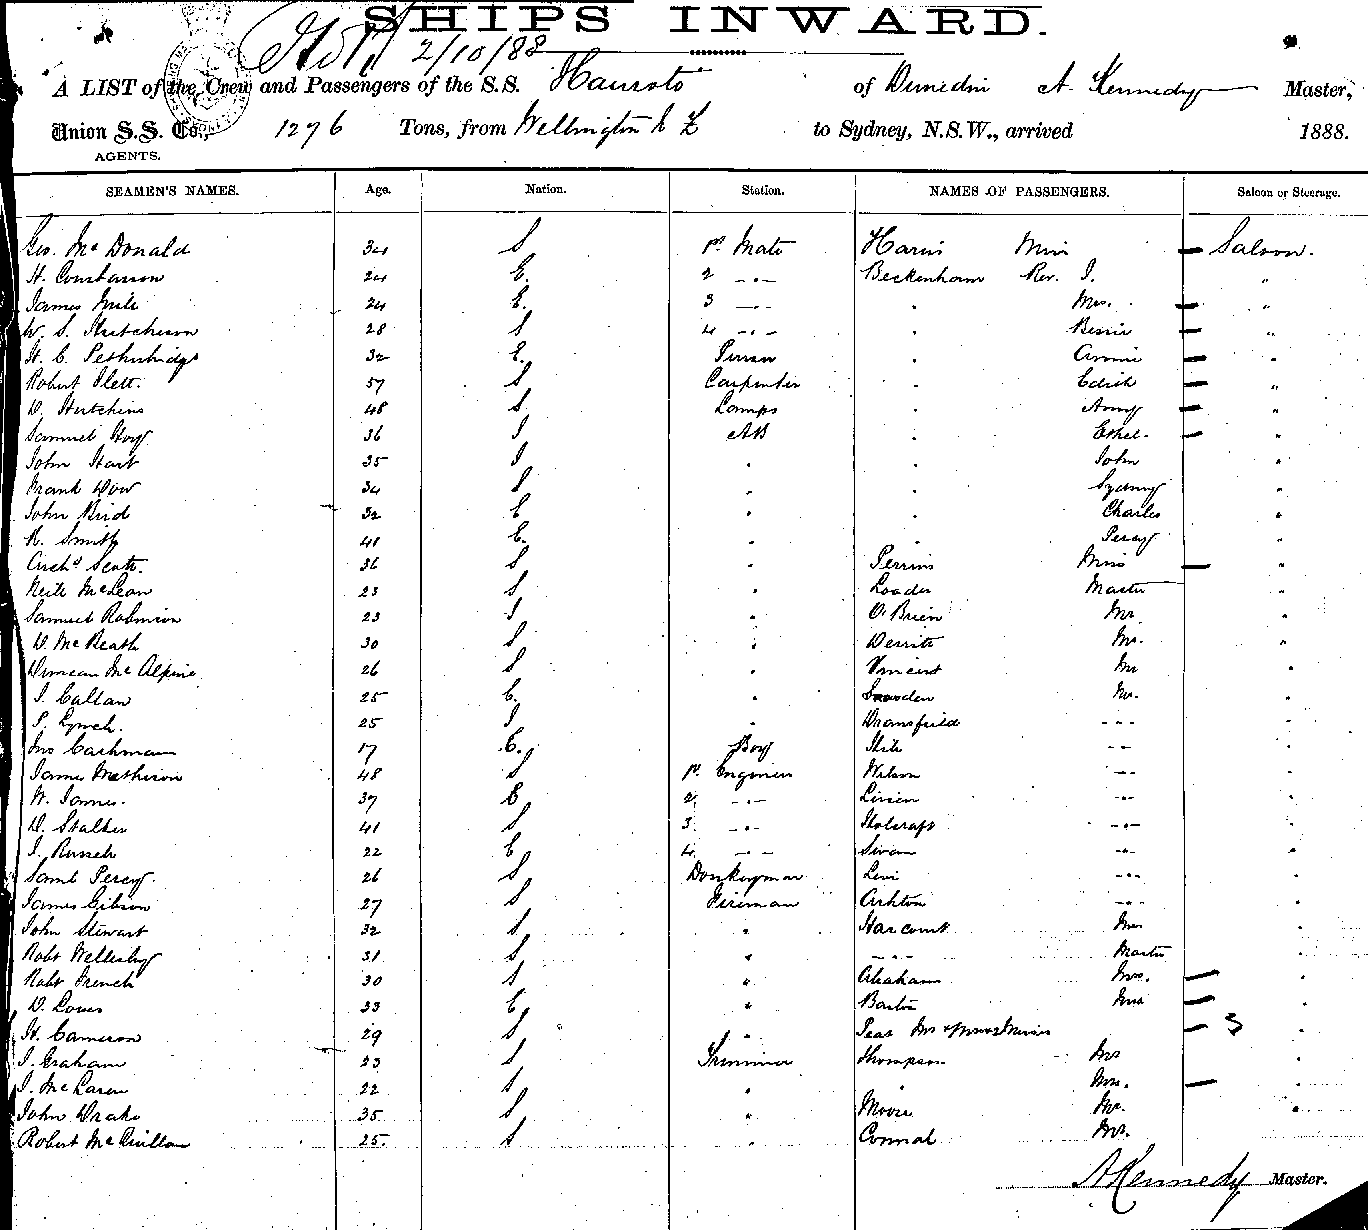 SHIPS INWARD.
2/10/88
A LIST of the Crew and Passengers of the S.S. Hauroto of Dunedin A Kennedy Master,
Union S.S. Co., 1276 Tons, from Wellington N Z to Sydney, N.S.W., arrived 1888.
AGENTS.
SEAMEN'S NAMES. Age. Nation. Station. NAMES OF PASSENGERS. Saloon or Steerage.
Geo. McDonald 34 S 1st Mate Harris Miss — Saloon.
H. 24 E. 2 -"- Beckenham Rev. J. "
James 24 E. 3 -"- " Mrs. — "
W. S. Hutcheson 28 S 4 -"- " Bessie — "
H. C. Petherbridge 32 E. Purser " Annie — "
Robert Flett. 57 S Carpenter " Edith — "
D. Hutchins 48 S. Lamps " Amy — "
Samuel Hoy 36 I AB " Ethel — "
John Hart 35 I " " John "
Frank Dow 34 S " " Sydney "
John Bird 32 E " " Charles "
R. Smith 41 E. " " Percy "
Archd Scott. 36 S " Perrins Miss — "
Neile McLean 23 S " Loader Master "
Samuel Robinson 23 I " O'Brien Mr "
D. McBeath 30 S " Mr. "
Duncan McAlpine 26 S " Vincent Mr "
J. Callan 25 E. " Snowden Mr. "
P. Lynch. 25 I " Dransfield -"- "
Jno Cashman 17 E. Boy -"- "
James Mathieson 48 S 1st Engineer Wilson -"- "
W. James. 37 E 2 -"- -"- "
D. Stalker 41 S 3 -"- Holcraft -"- "
J. Russell 22 E 4 -"- Swan -"- "
Saml Percy. 26 S Donkeyman Levi -"- "
James Gibson 27 S Fireman Ashton -"- "
John Stewart 32 S " Harcourt "
Robt Wellesley 31 S " -"- Master "
Robt French 30 S " Abraham Mrs. — "
D. Lowes 33 E " — "
H. Cameron 29 S " — 3 "
J. Graham 23 S Trimmer Thompson Mr "
J. McLaren 22 S " " Mrs. — "
John Drake 35 S " Moore Mr. "
Robert McQuillan 25. S " Connal Mr.
A Kennedy Master.